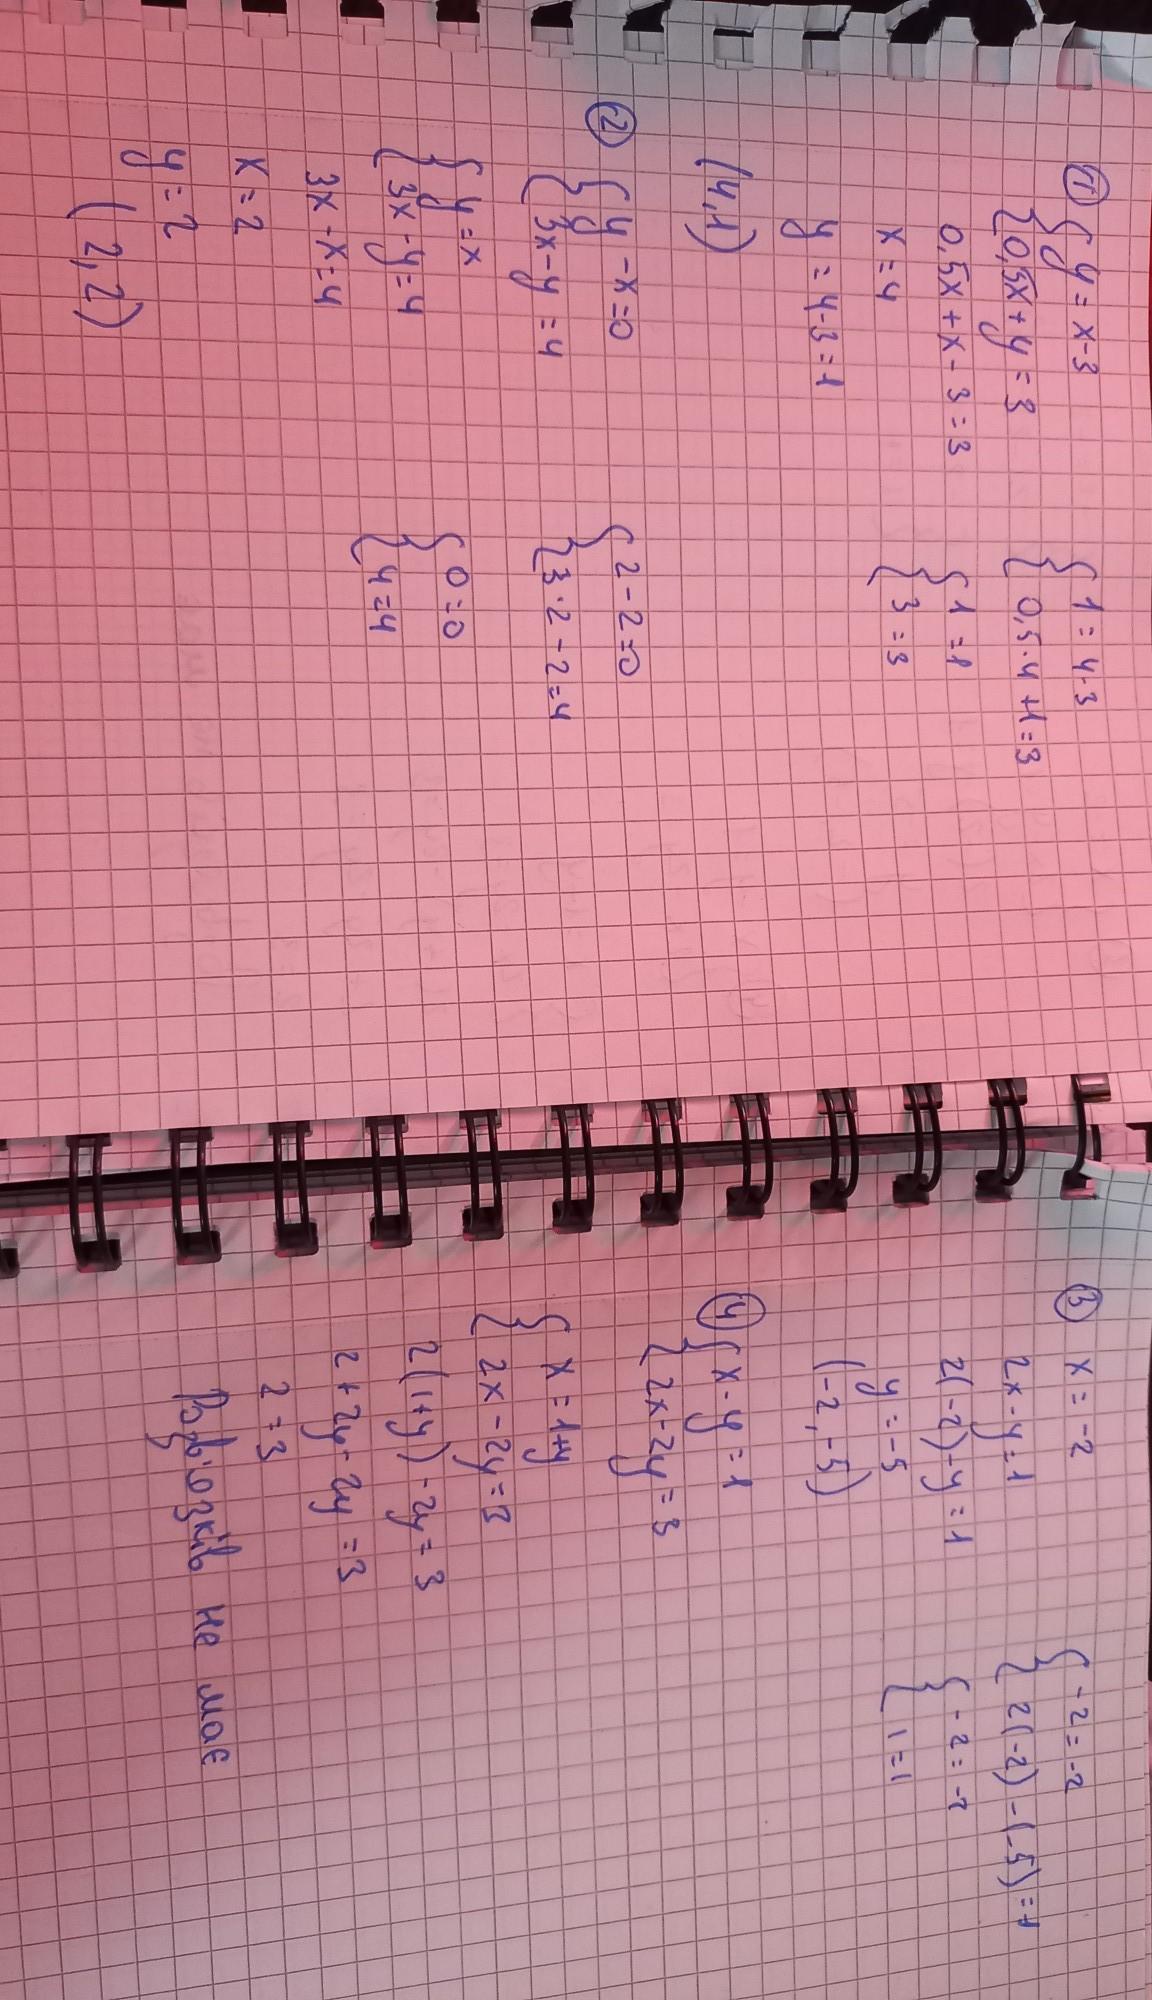 1
y = x-3
0,5x + y = 3
0,5x + x - 3 = 3
x = 4
y = 4-3 = 1
(4,1)
1 = 4-3
0,5·4 +1 = 3
1 = 1
3 = 3
2
y - x = 0
3x - y = 4
y = x
3x - y = 4
3x - x = 4
x = 2
y = 2
(2,2)
2 - 2 = 0
3·2 - 2 = 4
0 = 0
4 = 4
3
x = -2
2x - y = 1
2(-2) - y = 1
y = -5
(-2,-5)
-2 = -2
2(-2) - (-5) = 1
-2 = -2
1 = 1
4
x - y = 1
2x - 2y = 3
x = 1+y
2x - 2y = 3
2(1+y) - 2y = 3
2 + 2y - 2y = 3
2 = 3
Розв'язків не має